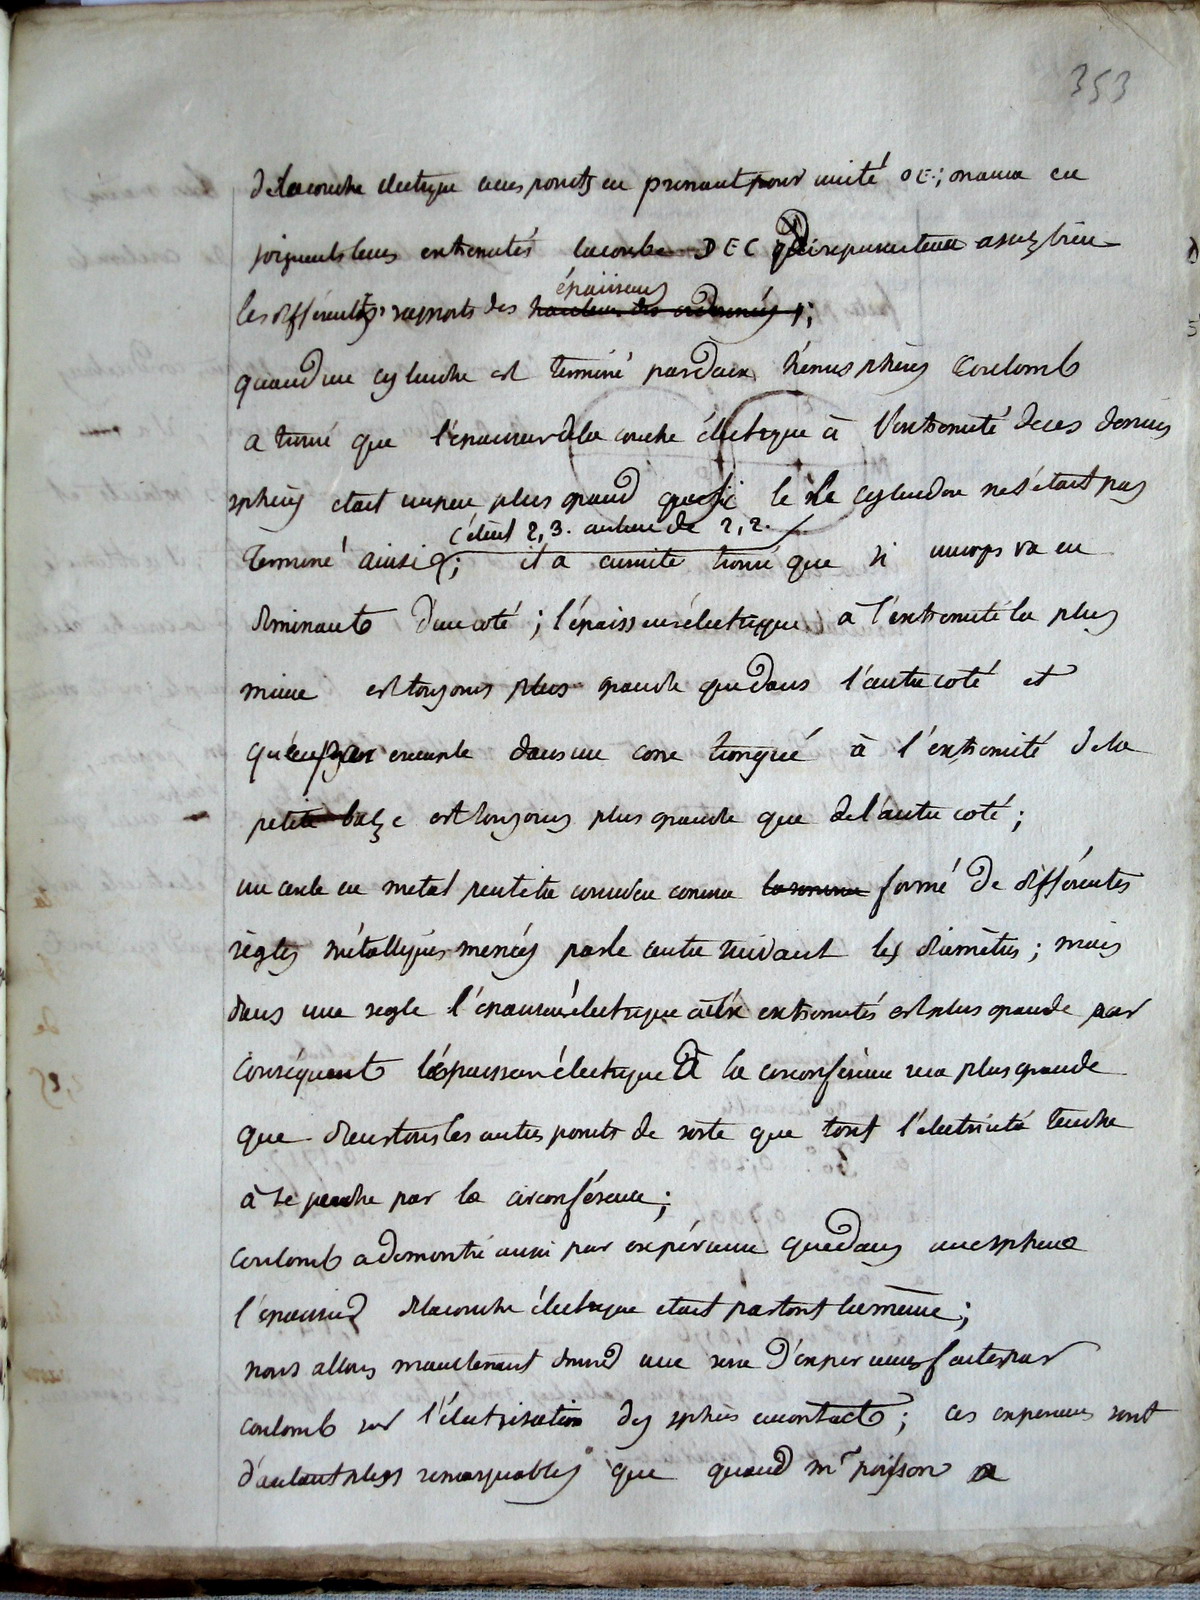 353
de la couche electrique en ces points en prenant pour unité OE; on aura en
joignant leurs extremités la courbe DEC qui representera assez bien
épaisseurs
les différents rapports des hauteurs des ordonnées;
quand un cylindre est terminé par deux hémisphères Coulomb
a trouvé que l'épaisseur de la couche électrique à l'extremité de ces demies
sphères etait un peu plus grand que si le cylindre ne s'était pas
c'était 2,3. au lieu de 2,2.
terminé ainsi; il a ensuite trouvé que si un corps va en
diminant d'un coté; l'épaisseur électrique à l'extremité la plus
mince est toujours plus grande que dans l'autre coté et
qu' par exemple dans un cone tronqué à l'extremité de la
petite base est toujours plus grande que de l'autre coté;
un cercle en metal peut etre considere comme la somme formé de différentes
règles métalliques menées par le centre suivant les diamètres; mais
dans une regle l'épaisseur électrique à l'extremités est plus grande par
conséquent l'épaisseur électrique à la circonférence sera plus grande
que dans tous les autres points de sorte que tout l'électricité tendra
à se perdre par la circonférence;
Coulomb a demontré aussi par expérience que dans une sphere
l'épaisseur de la couche électrique etait partout la même;
nous allons maintenant donner une serie d'experiences faites par
coulomb sur l'électrisation des sphères en contact; ces experiences sont
d'autant plus remarquables que quand mr poisson a